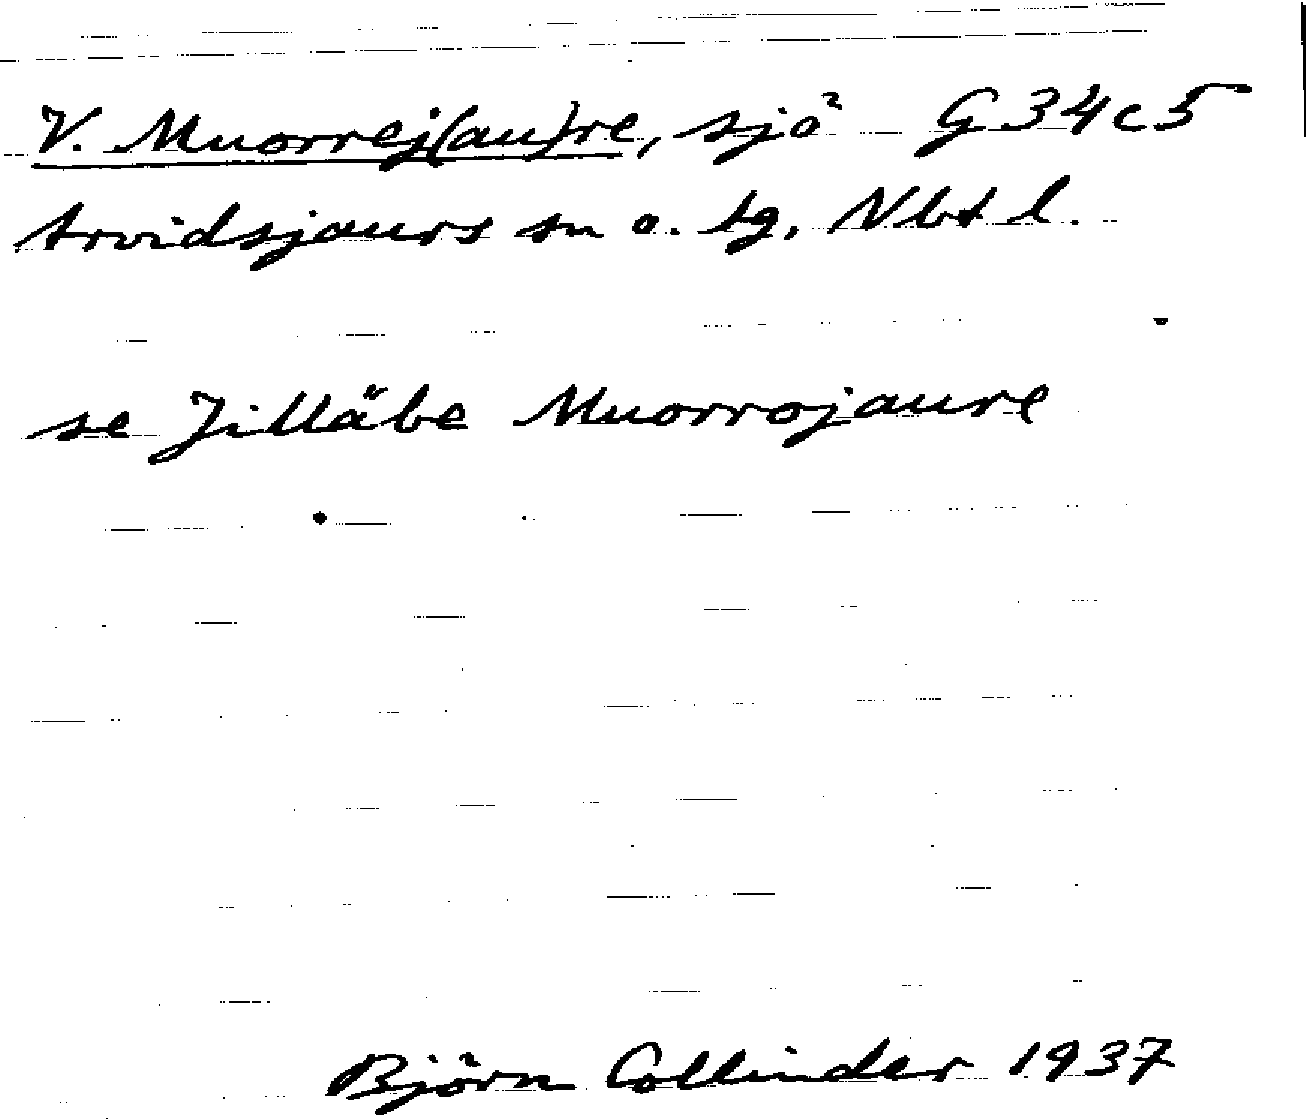 V. Muorrej(au)re, sjö G 34 c 5
Arvidsjaurs sn o. tg, Nbt l.
se Jilläbe Muorrojaure
Björn Collinder 1937